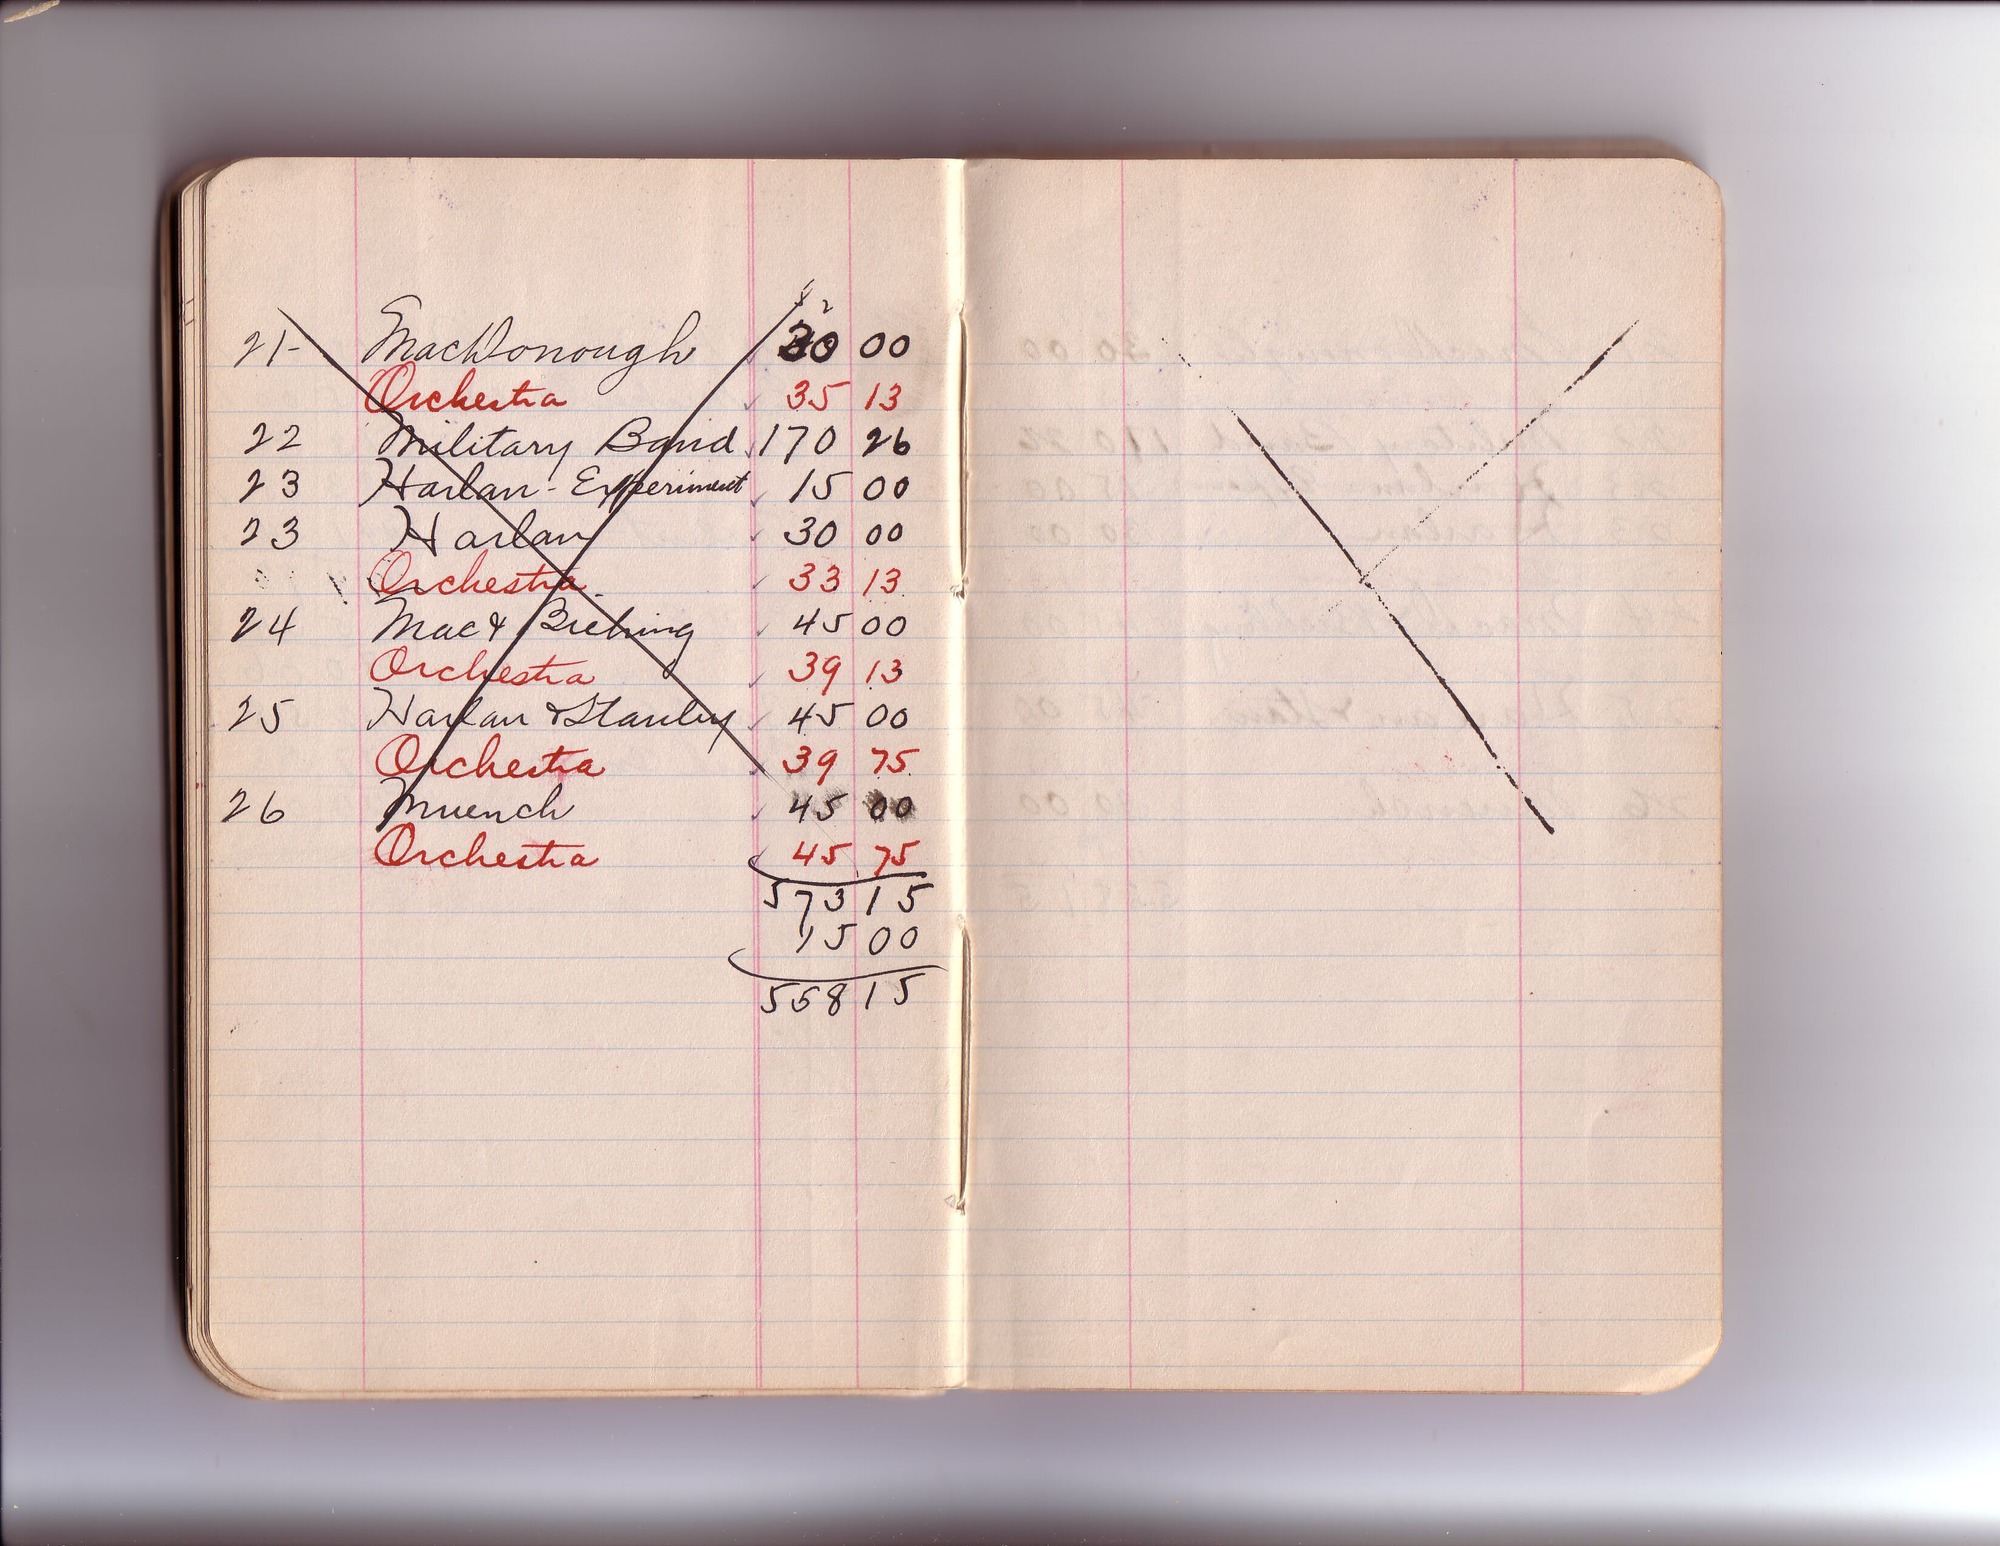 21- MacDonough 30 00
Orchestra 35 13
22 Military Band 170 26
23 Harlan - Experiment 15 00
23 Harlan 30 00
Orchestra. 33 13
24 Mac & Biehing 45 00
Orchestra 39 13
25 Harlan & Stanley 45 00
Orchestra 39 75
26 Muench 45 00
Orchestra 45 75
573 15
15 00
558 15